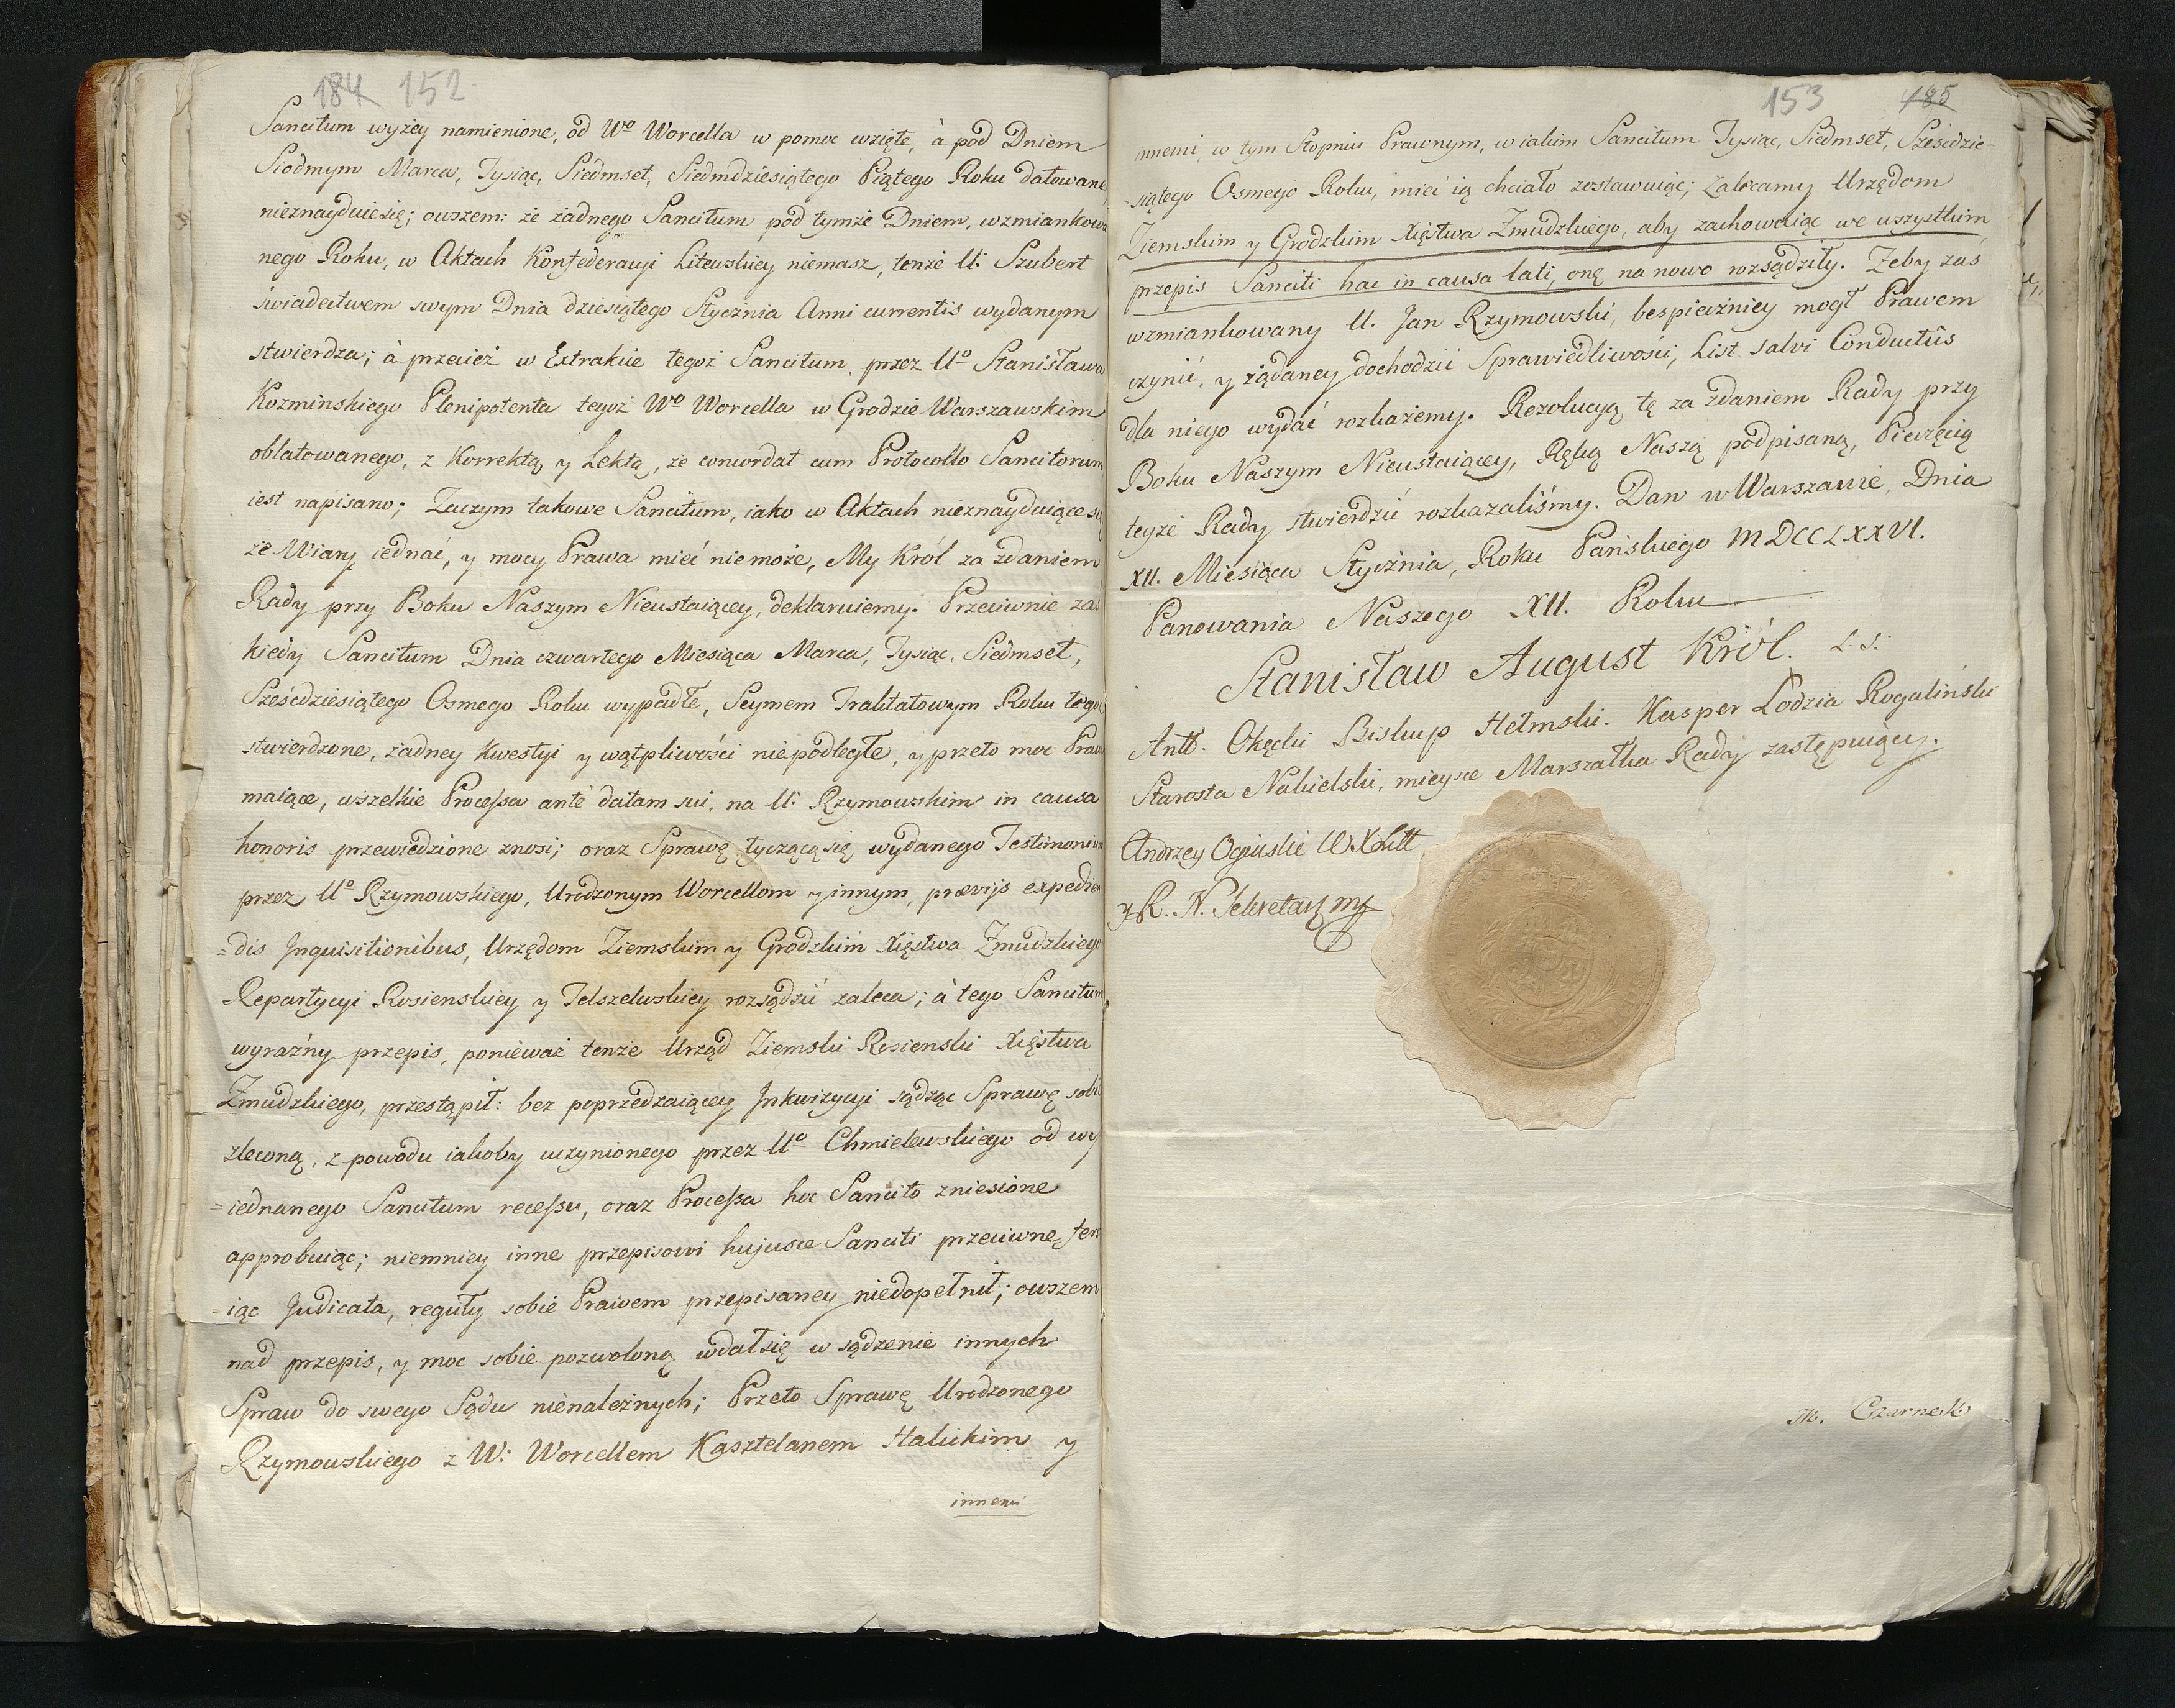 184 152
Sancitum wyżey namienione, od Wo Worcella w pomoc wzięte, à pod Dniem
Siodmym Marca, Tysiąc, Siedmset, Siedmdziesiątego Piątego Roku datowane
nieznayduiesię; owszem: że żadnego Sancitum pod tymże Dniem, wzmiankowa
nego Roku, w Aktach Konfederacyi Litewskiey niemasz, tenże U: Szubert
świadectwem swym Dnia dziesiątego Stycżnia Anni currentis wydanym
stwierdza; à przecież w Extrakcie tegoż Sancitum, przez Uo Stanisława
Kozminskiego Plenipotenta tegoż Wo Worcella w Grodzie Warszawskim
oblatowanego, z Korrektą y Lektą, że concordat cum Protocollo Sancitorum
iest napisano; Zaczym takowe Sancitum, iako w Aktach nieznayduiące się
że Wiary iednać, y mocy Prawa mieć niemoże, My Król za zdaniem
Rady przy Boku Naszym Nieustaiącey, deklaruiemy. Przeciwnie zaś
kiedy Sancitum Dnia czwartego Miesiąca Marca, Tysiąc, Siedmset,
Sześcdziesiątego Osmego Roku wypadłe, Seymem Traktatowym Roku tegoż
stwierdzone, żadney Kwestyi y wątpliwości niepodległe, y przeto moc Prawa
maiące, wszelkie Processa antè datam sui, na U: Rzymowskim in causa
honoris przewiedzione znosi; oraz Sprawę tyczącąsię wydanego Testimonium
przez Uo Rzymowskiego, Urodzonym Worcellom y innym, prævijs expedien
=dis Inquisitionibus, Urzędom Ziemskim y Grodzkim Xięstwa Zmudzkiego
Repartycyi Rosienskiey y Telszewskiey rozsądzić zaleca; à tego Sancitum
wyraźny przepis, ponieważ tenże Urząd Ziemski Rosienski Xięstwa
Zmudzkiego, przestąpił: bez poprzedzaiącey Inkwizycyi sądząc Sprawę sobie
zleconą, z powodu iakoby uczynionego przez Uo Chmielewskiego od wy
=iednanego Sancitum recessu, oraz Processa hoc Sancito zniesione
approbuiąc; niemniey inne przepisowi hujusce Sanciti przeciwne, fer
=iąc Judicata, reguły sobie Prawem przepisaney niedopełnił; owszem
nad przepis, y moc sobie pozwoloną wdałsię w sądzenie innych
Spraw do swego Sądu nienależnych; Przeto Sprawę Urodzonego
Rzymowskiego z W: Worcellem Kasztelanem Halickim y
innemi
153 185
innemi, w tym Stopniu Prawnym, w iakim Sancitum Tysiąc, Siedmset, Sześcdzie-
-siątego Osmego Roku, mieć ią chciało zostawuiąc; zalecamy Urzędom
Ziemskim y Grodzkim Xięstwa Zmudzkiego, aby zachowuiąc we wszystkim
przepis Sanciti hac in causa lati, onę na nowo rozsądziły. Zeby zaś
wzmiankowany U. Jan Rzymowski, bespieczniey mogł Prawem
czynić, y żądaney dochodzić Sprawiedliwości, List salvi Conductûs
dla niego wydać rozkażemy. Rezolucyą tę za zdaniem Rady przy
Boku Naszym Nieustaiącey, Ręką Naszą podpisaną, Pieczęcią
teyże Rady stwierdzić rozkazaliśmy. Dan w Warszawie, Dnia
XII. Miesiąca Stycżnia, Roku Pańskiego MDCCLXXVI.
Panowania Naszego XII. Roku
Stanisław August Król. L.S.
Antt. Okęcki Biskup Hełmski. Kasper Lodzia Rogaliński
Starosta Nakielski, mieysce Marszałka Rady zastępuiący.
Andrzey Ogiński WXLitt
y R. N. Sekretarz mp
M. Czarnecki